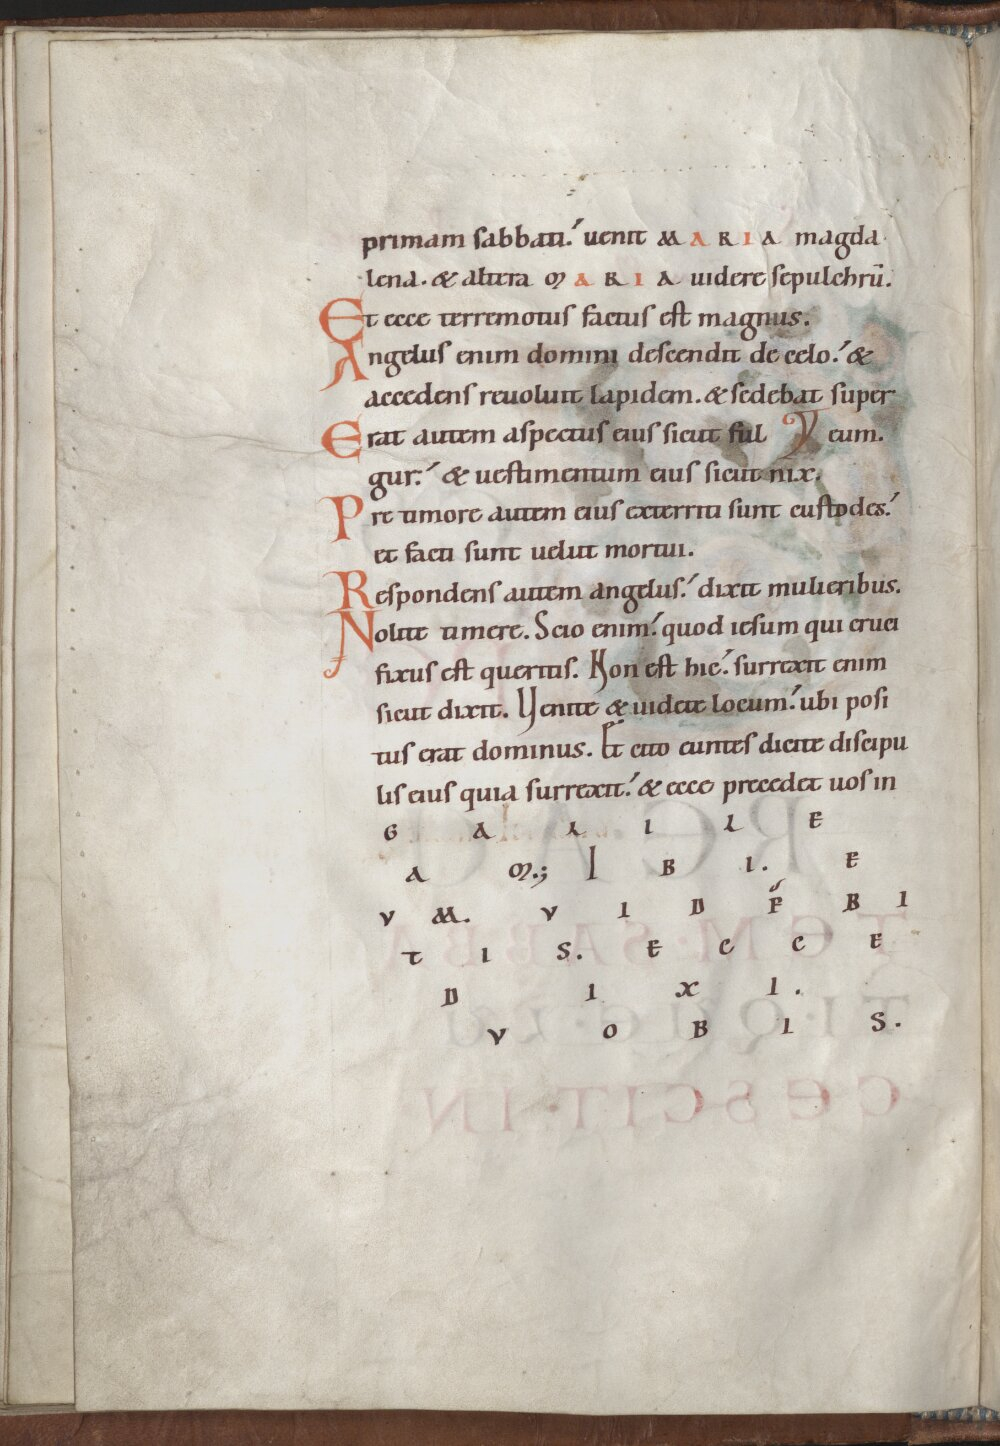 primam sabbati. uenit MARIA magda
lena. & altera MARIA uidere sepulchrū.
Et ecce terremotus factus est magnus.
Angelus enim domini descendit de celo. &
accedens reuoluit lapidem. & sedebat super
Erat autem aspectus eius sicut ful eum.
gur. & uestimentum eius sicut nix.
Pre timore autem eius exterriti sunt custodes.
et facti sunt uelut mortui.
Respondens autem angelus. dixit mulieribus.
Nolite timere. Scio enim. quod iesum qui cruci
fixus est queritis. Non est hic. surrexit enim
sicut dixit. Uenite & uidete locum. ubi posi
tus erat dominus. Et cito euntes dicite discipu
lis eius quia surrexit. & ecce precedet uos in
G A L I L E
A M.; I B I. E
V M. V I D E BI
T I S. E C C E
D I X I.
V O B I S.